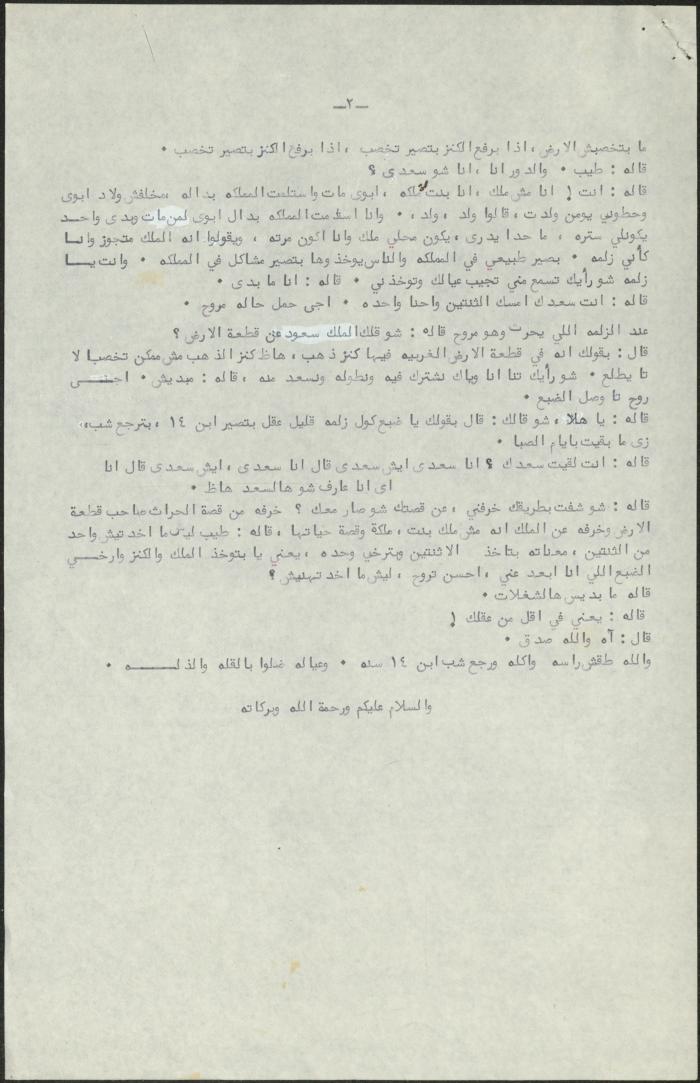 ـ٢ـ
ما بتخصبش الارض ، اذا برفع الكنز بتصير تخصب ، اذا برفع الكنز بتصير تخصب ٠
قاله : طيب ٠ والدور انا ، انا شو سعدى ؟
قاله : انت ! انا مش ملك ، انا بنت ملكه ، ابوى مات واستلمت المملكه بداله ، مخلفش ولاد ابوى
وحطوني يومن ولدت ، قالوا ولد ، ولد ، ٠ وانا استلمت المملكه بدال ابوى لمن مات وبدى واحد
يكونلي ستره ، ما حدا يدرى ، يكون محلي ملك وانا اكون مرته ، ويقولوا انه الملك متجوز وانا
كأني زلمه ٠ بصير طبيعي في المملكه والناس يوخذوها بتصير مشاكل في المملكه ٠ وانت يا
زلمه شو رأيك تسمع مني تجيب عيالك وتوخذني ٠ قاله : انا ما بدى ٠
قاله : انت سعدك امسك الثنتين واحنا واحده ٠ اجى حمل حاله مروح ٠
عند الزلمه اللي يحرث وهو مروح قاله : شو قلك الملك سعود عن قطعة الارض ؟
قال : بقولك انه في قطعة الارض الغربيه فيها كنز ذهب ، هاظ كنز الذهب مش ممكن تخصب الا
تا يطلع ٠ شو رأيك تنا انا وياك نشترك فيه ونطوله ونسعد منه ، قاله : مبديش ٠ اجى
روح تا وصل الضبع ٠
قاله : يا هلا ، شو قالك : قال بقولك يا ضبع كول زلمه قليل عقل بتصير ابن ١٤ ، بترجع شب ،
زى ما بقيت بايام الصبا ٠
قاله : انت لقيت سعدك ؟ انا سعدى ايش سعدى قال انا سعدى ، ايش سعدى قال انا
اى انا عارف شو هالسعد هاظ ٠
قاله : شو شفت بطريقك خرفني ، عن قصتك شو صار معك ؟ خرفه من قصة الحراث صاحب قطعة
الارض وخرفه عن الملك انه مش ملك بنت ، ملكة وقصة حياتها ، قاله : طيب ليش ما اخدتيش واحد
من الثنتين ، معناته بتاخذ الاثنتين وبترخي وحده ، يعني يا بتوخذ الملك والكنز وارخي
الضبع اللي انا ابعد عني ، احسن تروح ، ليش ما اخدتهنيش ؟
قاله ما بديس هالشغلات ٠
قاله : يعني في اقل من عقلك !
قال : آه والله صدق ٠
والله طقش راسه واكله ورجع شب ابن ١٤ سنه ٠ وعياله ضلوا بالقله والذله ٠
والسلام عليكم ورحمة الله وبركاته